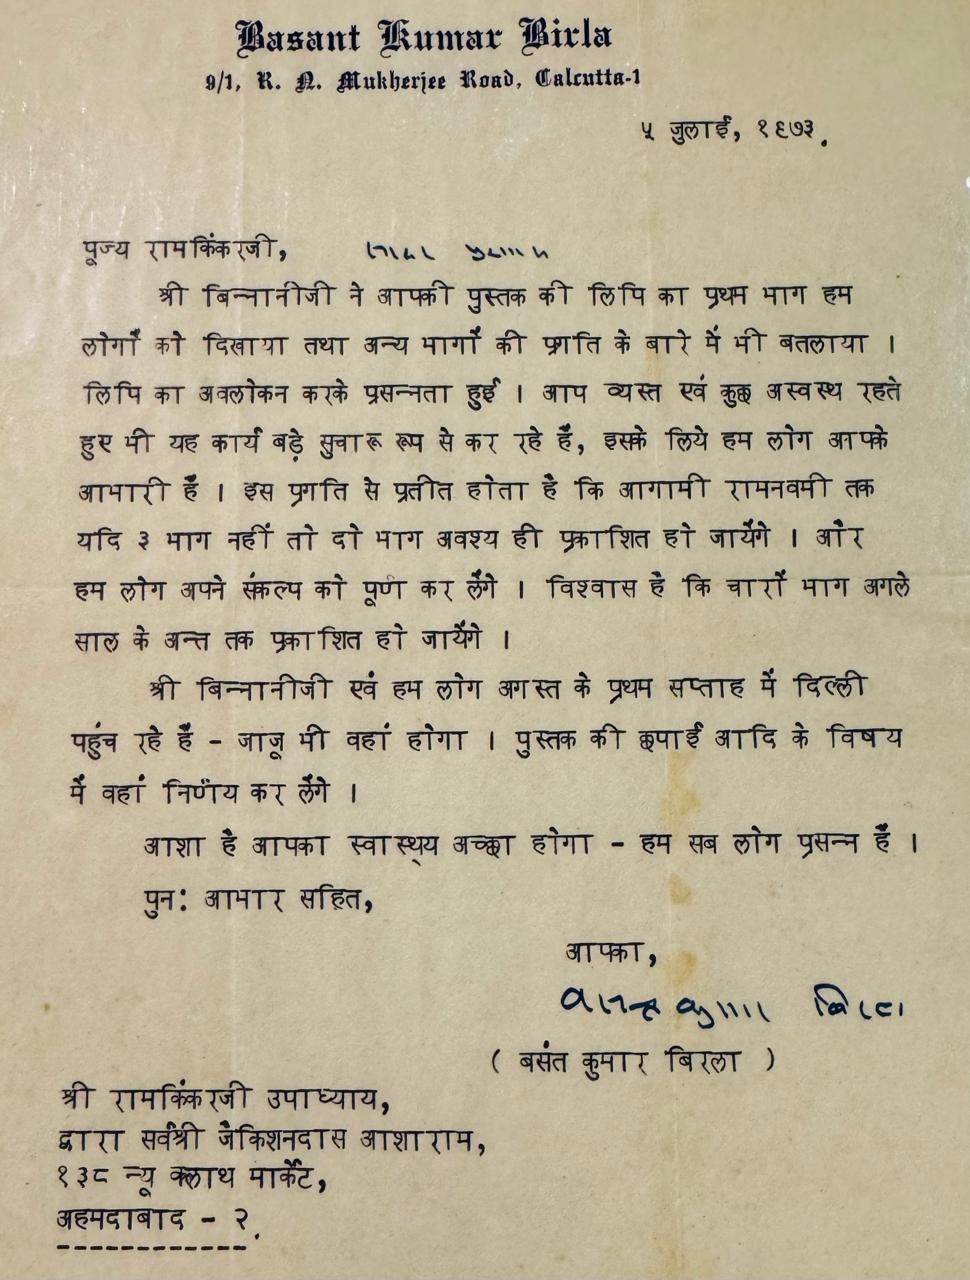 Basant Kumar Birla
9/1, R. N. Mukherjee Road, Calcutta-1
५ जुलाई, १९७३.
पूज्य रामकिंकरजी, सादर प्रणाम
श्री बिन्नानीजी ने आपकी पुस्तक की लिपि का प्रथम भाग हम
लोगों को दिखाया तथा अन्य भागों की प्रगति के बारे में भी बतलाया ।
लिपि का अवलोकन करके प्रसन्नता हुई । आप व्यस्त एवं कुछ अस्वस्थ रहते
हुए भी यह कार्य बड़े सुचारू रूप से कर रहे हैं, इसके लिये हम लोग आपके
आभारी हैं । इस प्रगति से प्रतीत होता है कि आगामी रामनवमी तक
यदि ३ भाग नहीं तो दो भाग अवश्य ही प्रकाशित हो जायेंगे । और
हम लोग अपने संकल्प को पूर्ण कर लेंगे । विश्वास है कि चारों भाग अगले
साल के अन्त तक प्रकाशित हो जायेंगे ।
श्री बिन्नानीजी एवं हम लोग अगस्त के प्रथम सप्ताह में दिल्ली
पहुंच रहे हैं - जाजू भी वहां होगा । पुस्तक की छपाई आदि के विषय
में वहां निर्णय कर लेंगे ।
आशा है आपका स्वास्थ्य अच्छा होगा - हम सब लोग प्रसन्न हैं ।
पुनः आभार सहित,
आपका,
बसन्त कुमार बिरला
( बसंत कुमार बिरला )
श्री रामकिंकरजी उपाध्याय,
द्वारा सर्वश्री जैकिशनदास आशाराम,
१३८ न्यू क्लाथ मार्केट,
अहमदाबाद - २.